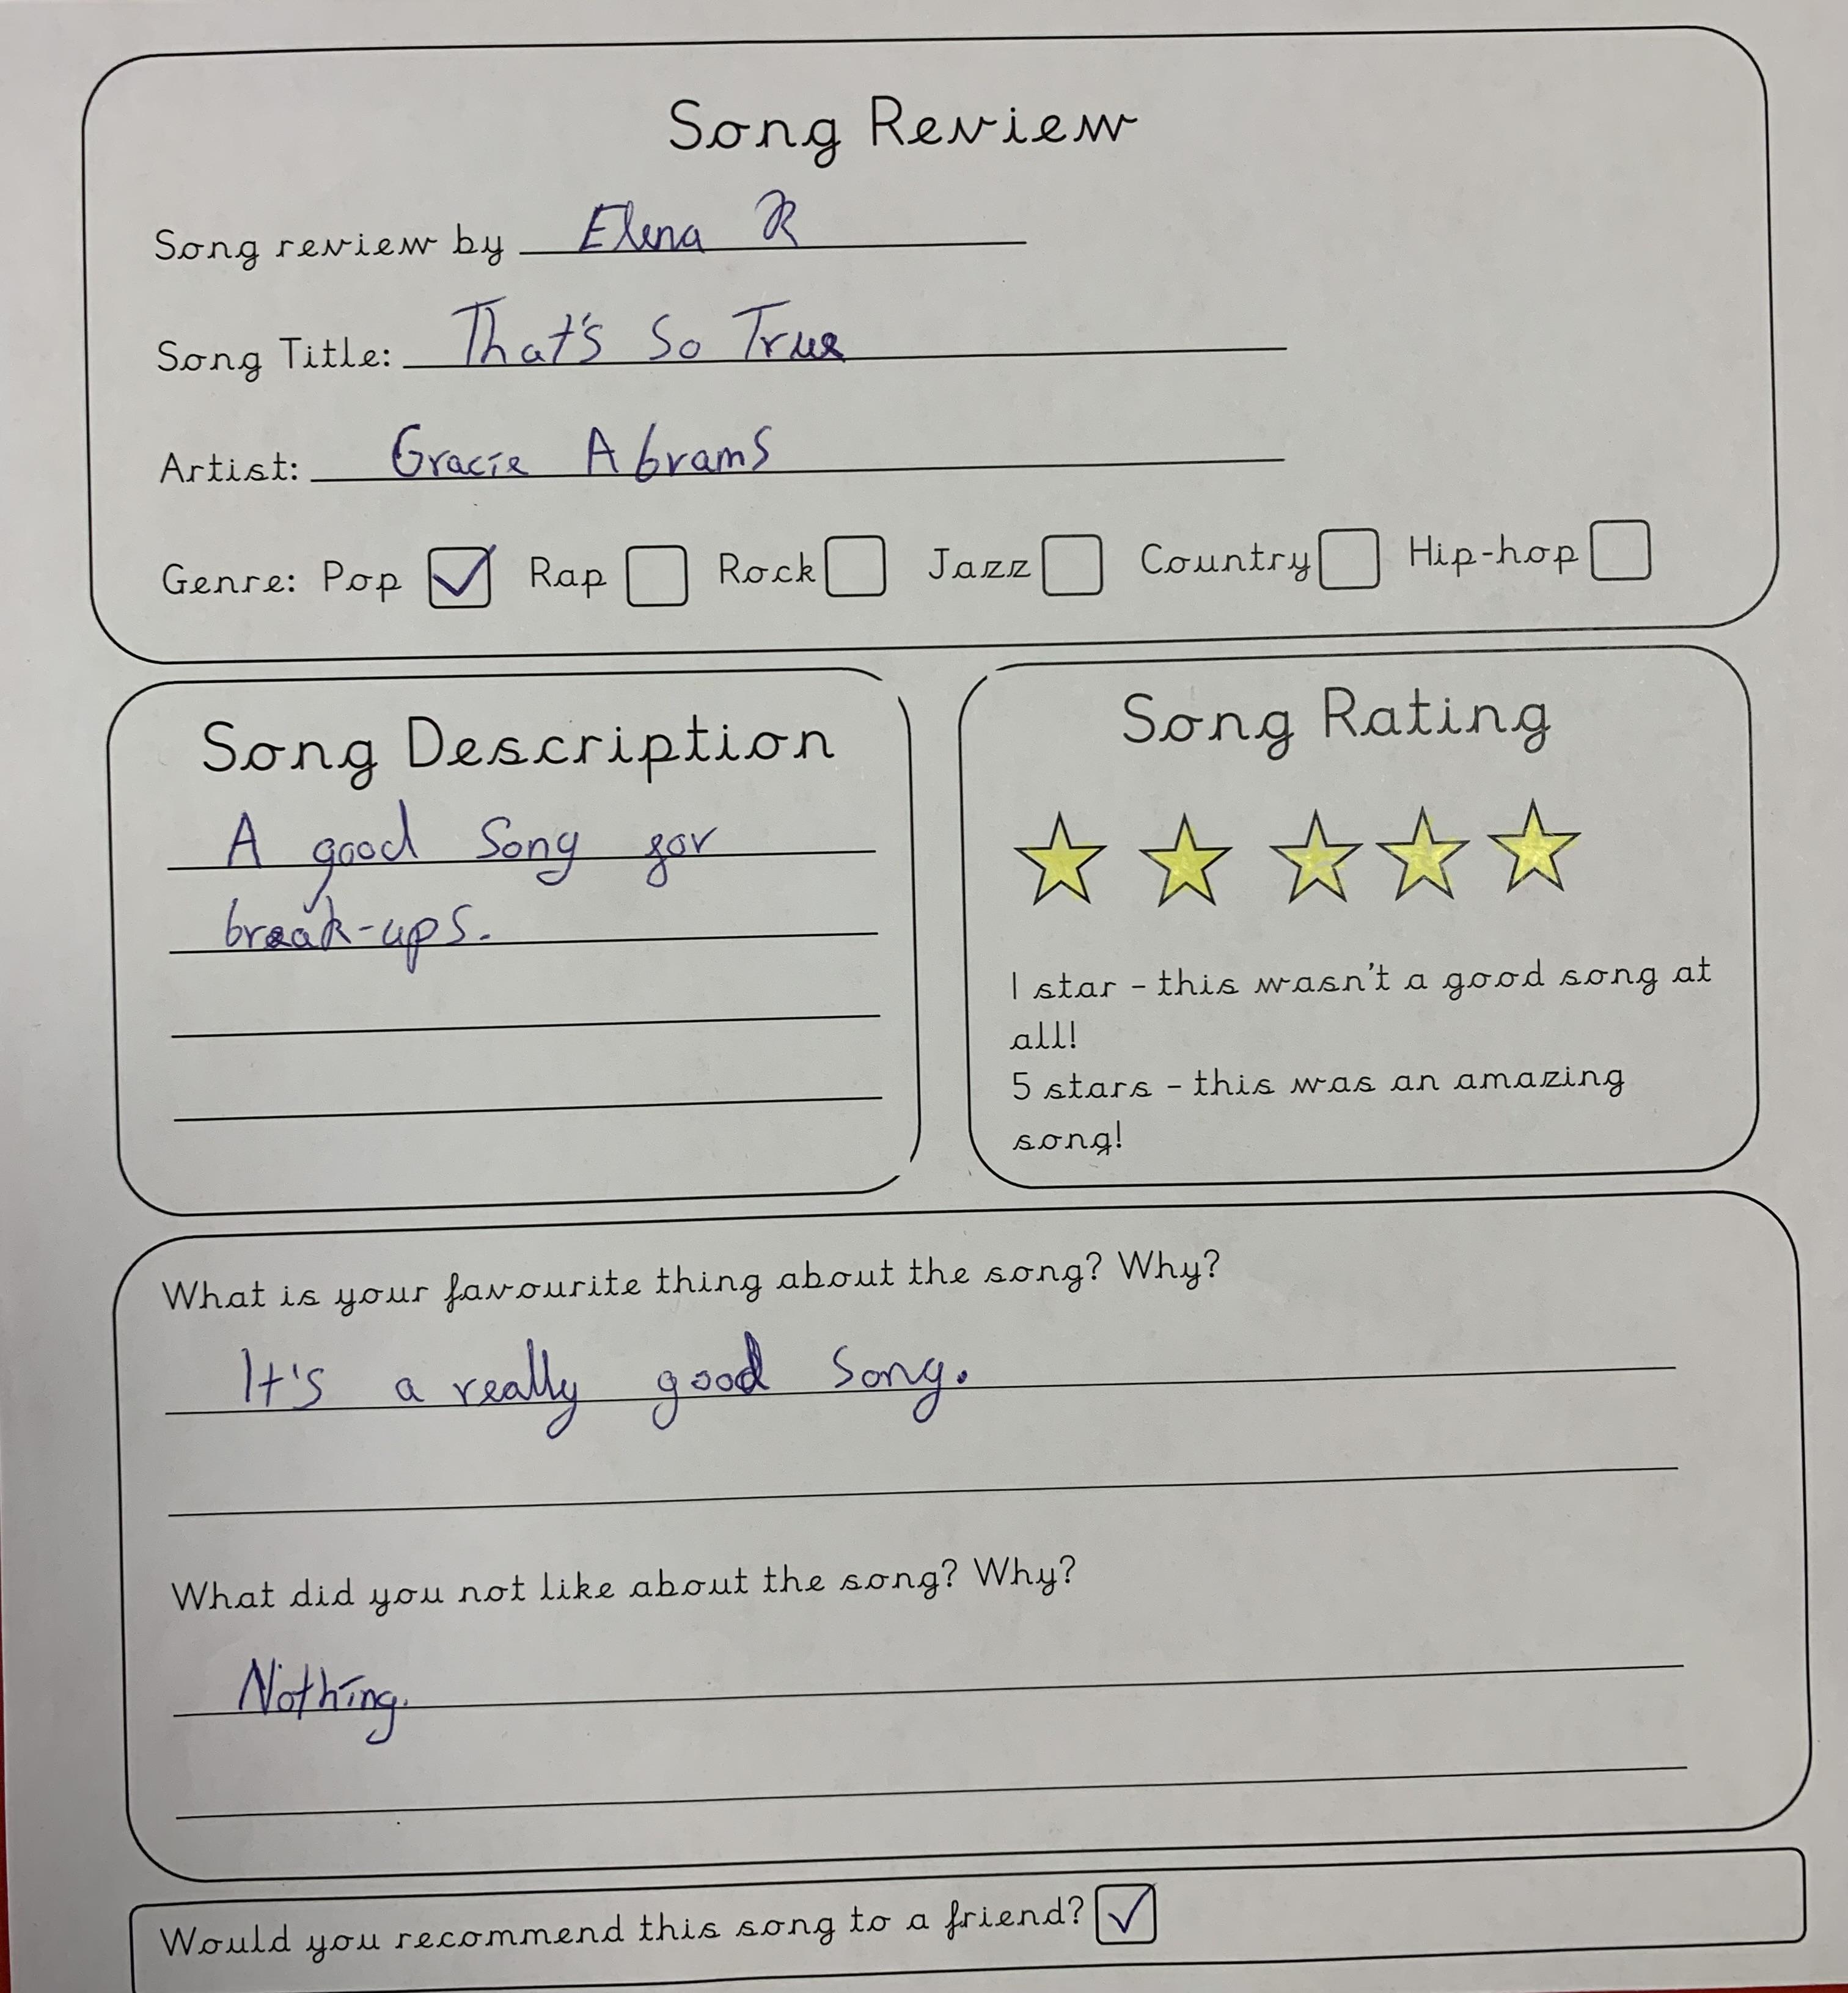 Song Review
Song review by Elena R
Song Title: That's So True
Artist: Gracie Abrams
Genre: Pop Rap Rock Jazz Country Hip-hop
Song Description
A good song for
break-ups.
Song Rating
1 star - this wasn't a good song at
all!
5 stars - this was an amazing
song!
What is your favourite thing about the song? Why?
It's a really good song.
What did you not like about the song? Why?
Nothing.
Would you recommend this song to a friend?